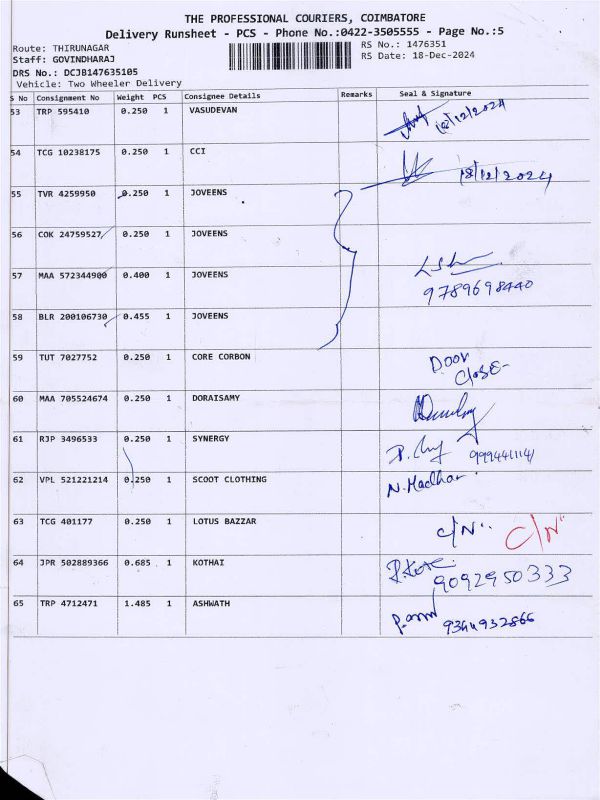 THE PROFESSIONAL COURIERS, COIMBATORE
Delivery Runsheet - PCS - Phone No.:0422-3505555 - Page No.:5
Route: THIRUNAGAR RS No.: 1476351
Staff: GOVINDHARAJ RS Date: 18-Dec-2024
DRS No.: DCJB147635105
Vehicle: Two Wheeler Delivery
S No Consignment No Weight PCS Consignee Details Remarks Seal & Signature
53 TRP 595410 0.250 1 VASUDEVAN 18/12/2024
54 TCG 10238175 0.250 1 CCI 18/12/2024
55 TVR 4259950 0.250 1 JOVEENS
56 COK 24759527 0.250 1 JOVEENS
57 MAA 572344900 0.400 1 JOVEENS
9789698440
58 BLR 200106730 0.455 1 JOVEENS
59 TUT 7027752 0.250 1 CORE CORBON Door
Close
60 MAA 705524674 0.250 1 DORAISAMY
61 RJP 3496533 0.250 1 SYNERGY
62 VPL 521221214 0.250 1 SCOOT CLOTHING N. Madhan
63 TCG 401177 0.250 1 LOTUS BAZZAR C/N" C/N"
64 JPR 502889366 0.685 1 KOTHAI
9092950333
65 TRP 4712471 1.485 1 ASHWATH
9344932866